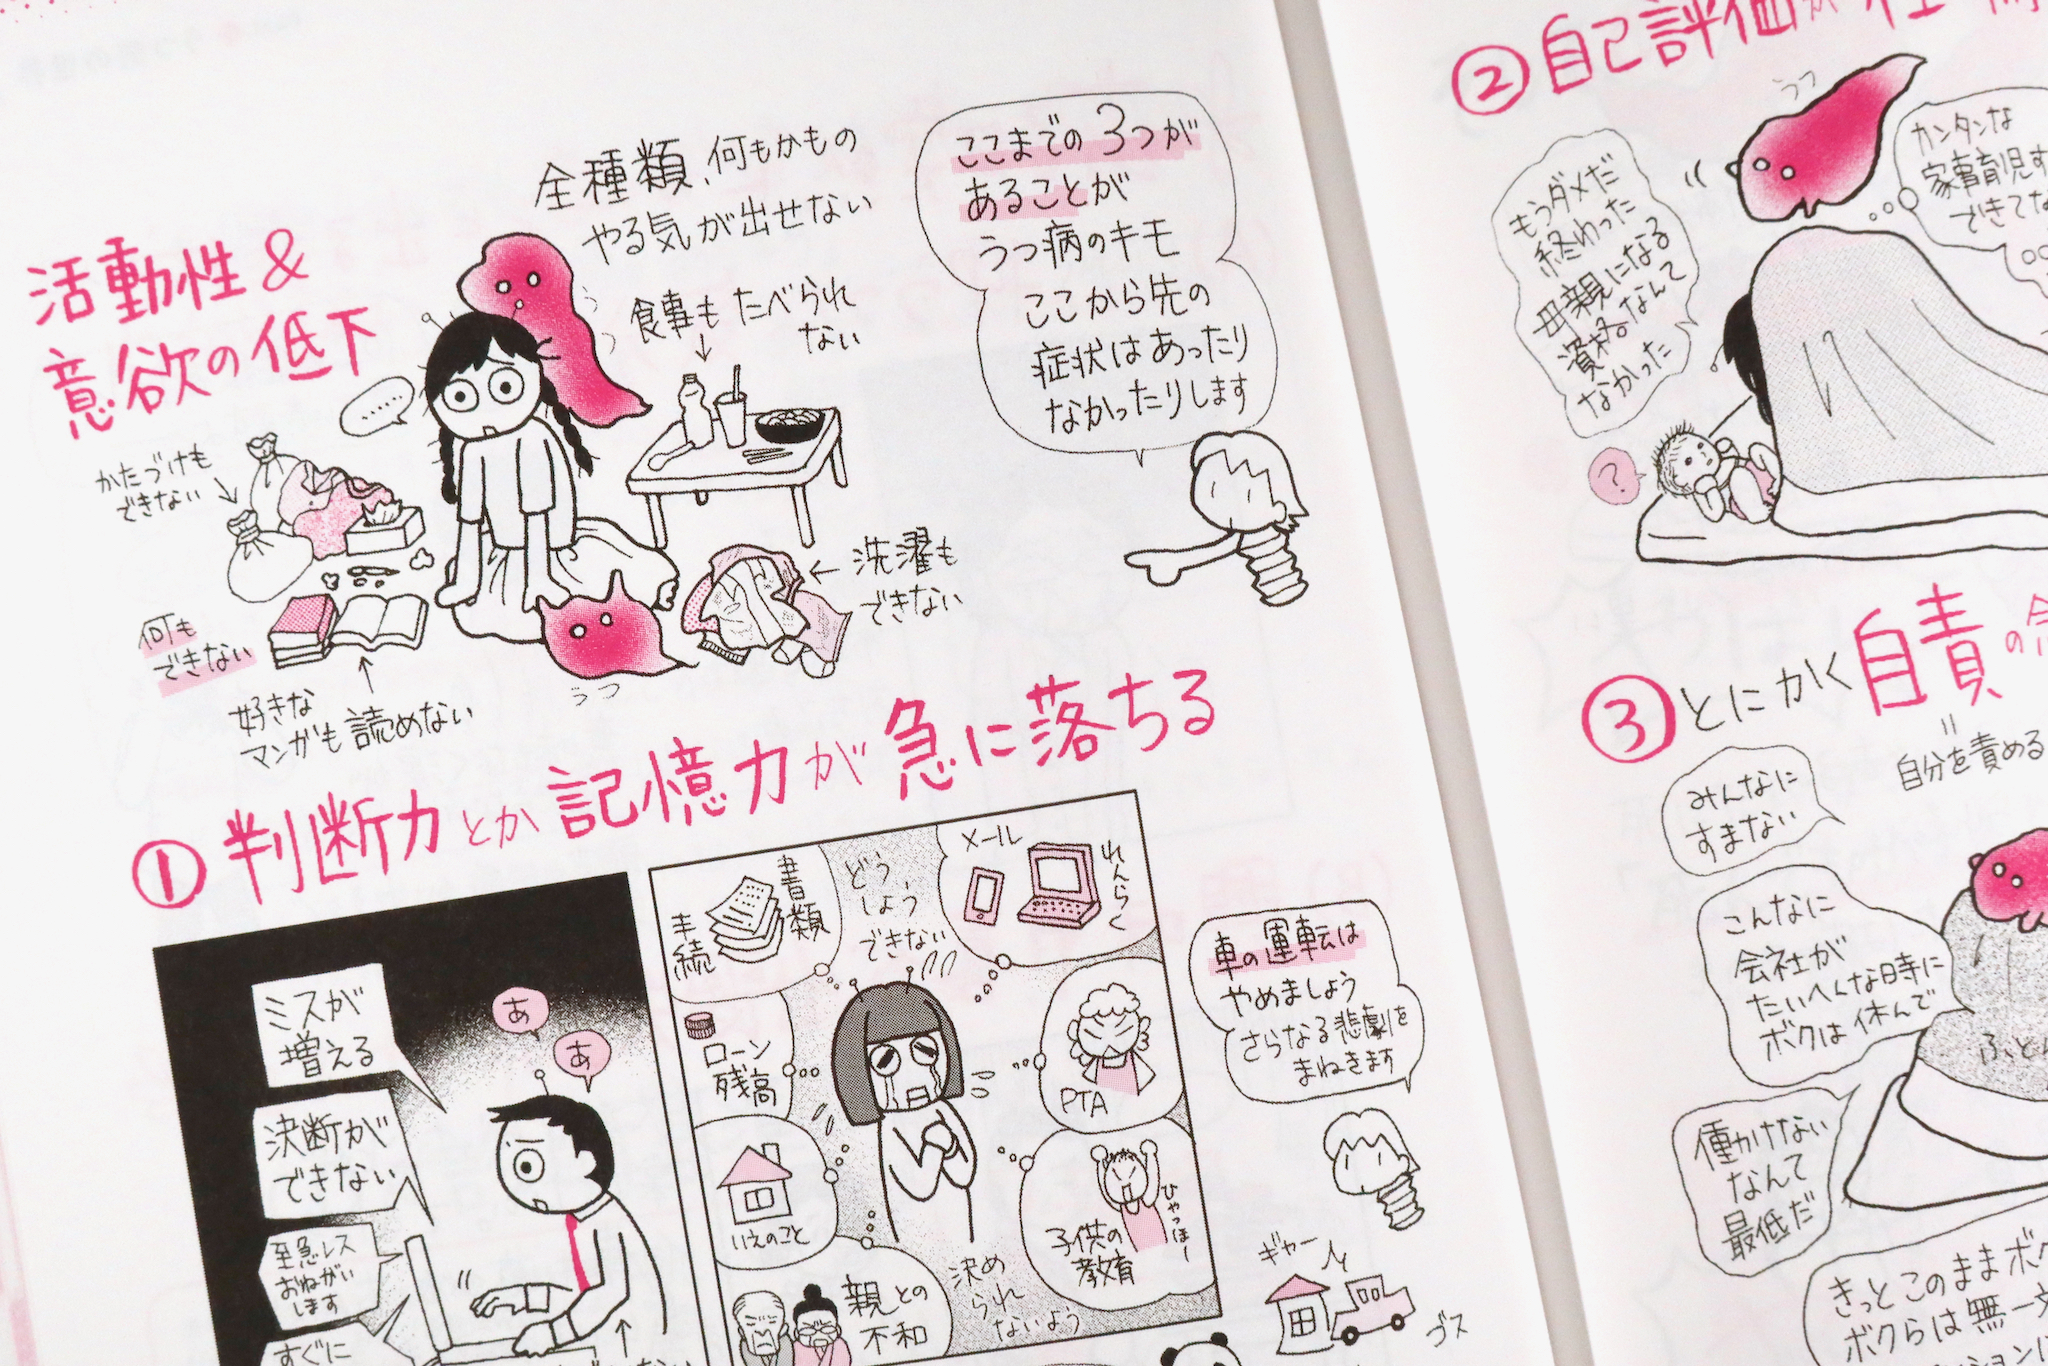 活動性&
意欲の低下
全種類、何もかもの
やる気が出せない
食事も たべられ
ない
かたづけも
できない
何も
できない
好きな
マンガも読めない
洗濯も
できない
うつ
ここまでの3つが
あることが
うつ病のキモ
ここから先の
症状はあったり
なかったりします
①判断力とか記憶力が急に落ちる
ミスが
増える
決断が
できない
至急レス
おねがい
します
すぐに
あ
あ
手続
書類
どう
しよう
できない
メール
れんらく
ローン
残高
PTA
いえのこと
子供の
教育
ひゃっほー
親との
不和
決め
られ
ないよう
車の運転は
やめましょう
さらなる悲劇を
まねきます
ギャー
ゴス
②自己評価が
うつ
もうダメだ
終わった
母親になる
資格なんて
なかった
カンタンな
家事育児す
できてな
?
③とにかく自責の
=
自分を責める
みんなに
すまない
こんなに
会社が
たいへんな時に
ボクは休んで
働かけない
なんて
最低だ
ふとん
きっとこのままボク
ボクらは無一文